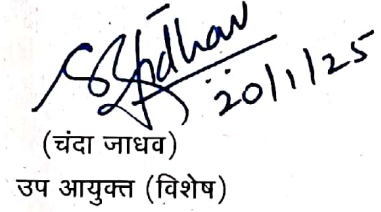 20/1/25
(चंदा जाधव)
उप आयुक्त (विशेष)